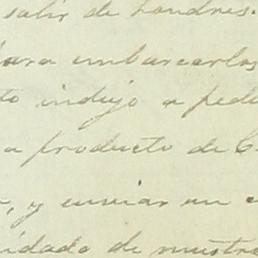 salir de Londres.
para embarcarlos
indujo a pedi
a producto de C
, y enviar un
idado de nuestro